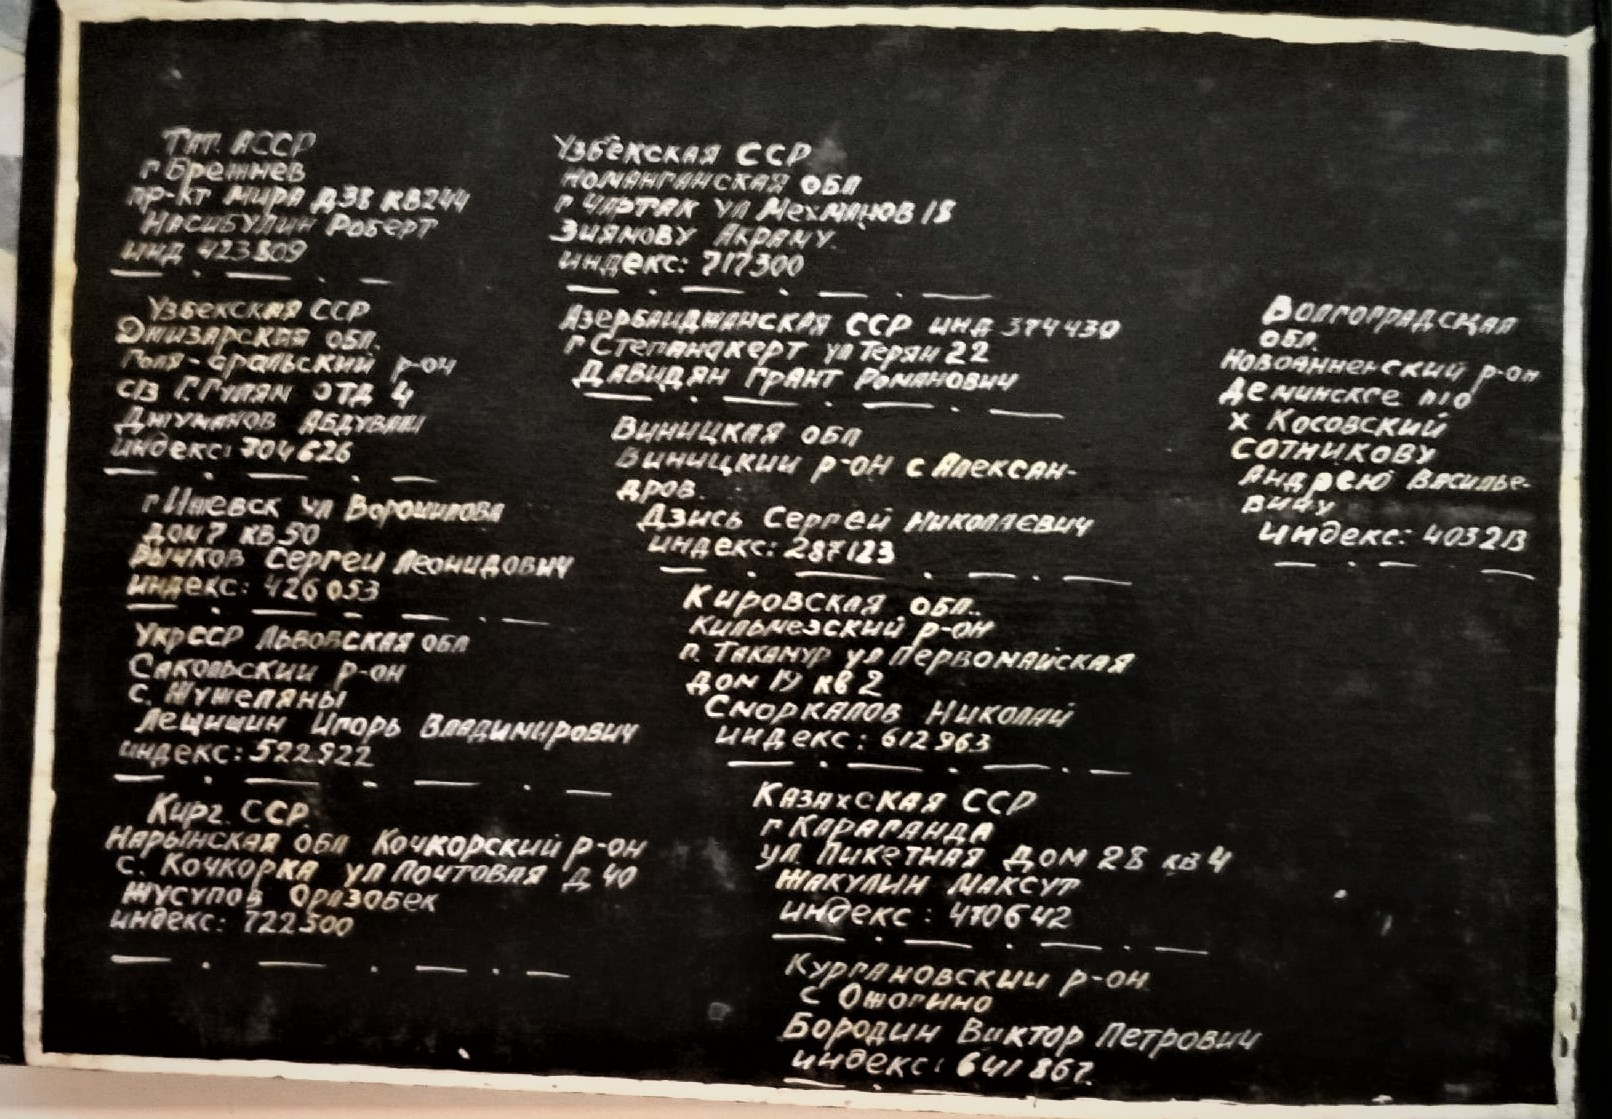 Тат. АССР
г Брежнев
пр-кт мира д38 кв244
Насибулин Роберт
инд 423809
Узбекская ССР
Джизарская обл.
Голя-аральский р-он
с/з Г.Гулям отд 4
Джуманов Абдували
индекс: 704626
г Ижевск ул Ворошилова
дом 7 кв 50
Бычков Сергеи Леонидович
индекс: 426053
УкрССР Львовская обл
Сакольский р-он
с. Жужеляны
Лещишин Игорь Владимирович
индекс: 522922
Кирг. ССР.
Нарынская обл Кочкорский р-он
с. Кочкорка ул Почтовая д 40
Жусупов Оразобек
индекс: 722500
Узбекская ССР
номанганская обл
г Чартак ул Мехманов 18
Зиямову Акраму.
индекс: 717300
Азербаиджанская ССР инд 374430
г Степанакерт ул Терян 22
Давидян Грант Романович
Виницкая обл
Виницкии р-он с Алексан-
дров.
Дзись Сергей Николаевич
индекс: 287123
Кировская обл..
Кильмезский р-он
п. Такамур ул Первомайская
дом 19 кв 2
Сморкалов Николай
индекс: 612963
Казахская ССР
г Караганда
ул. Пикетная дом 28 кв 4
Жакулин Максут
индекс: 470642
Кургановскии р-он
с Ожогино
Бородин Виктор Петрович
индекс: 641867.
Волгоградская
обл.
Новоанненский р-он
Деминское п/о
х Косовский
Сотникову
Андрею Василье-
вичу
индекс: 403213